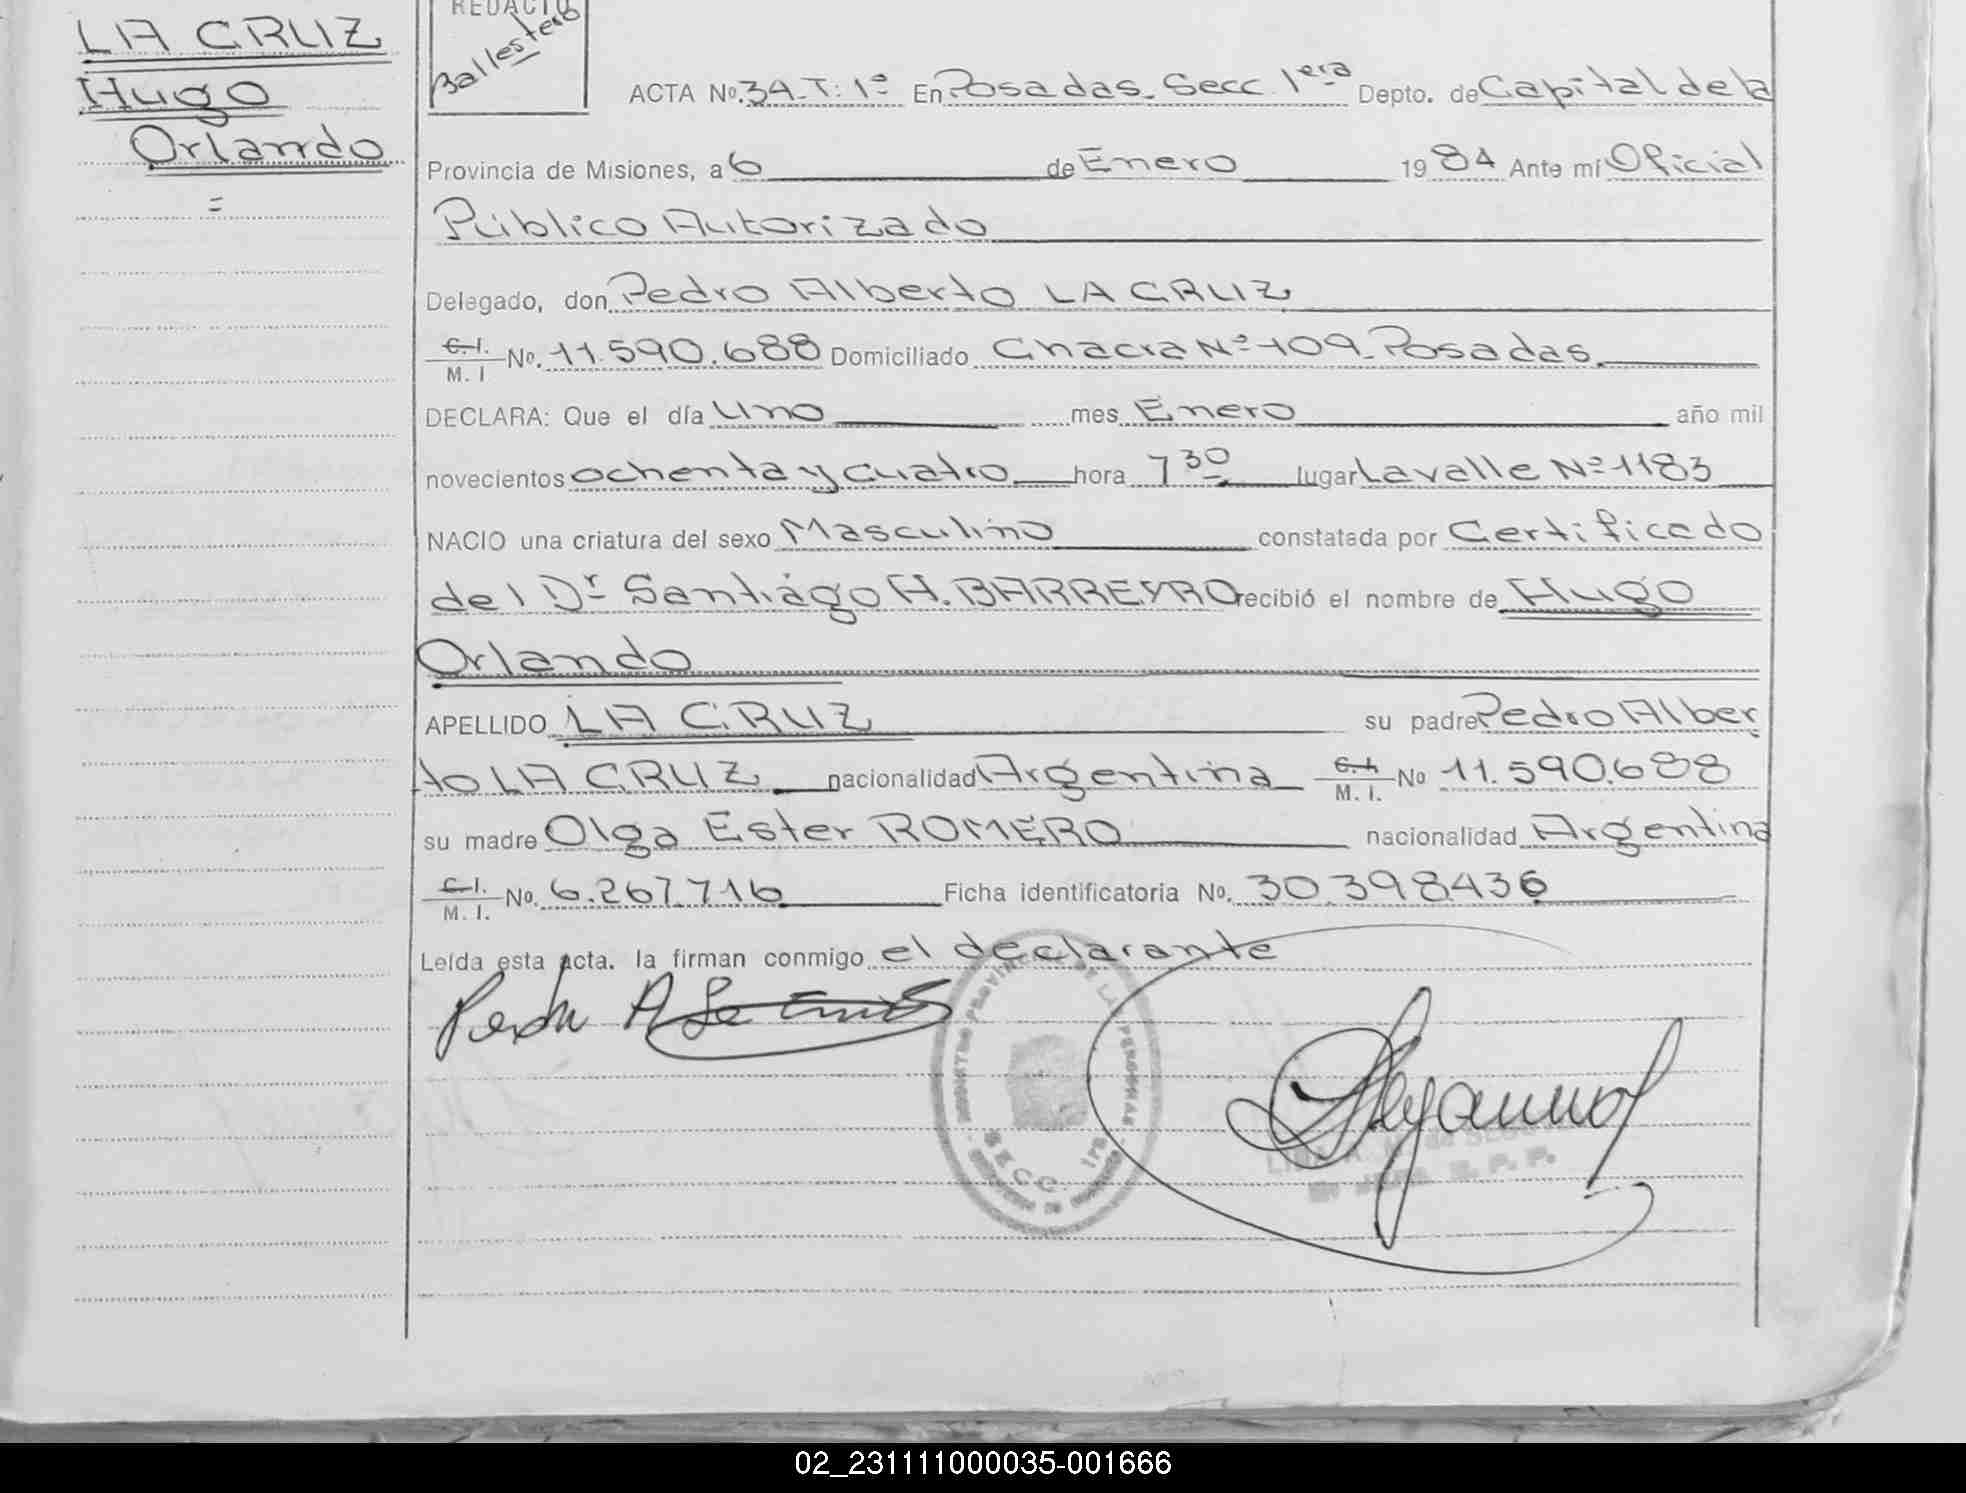 LA CRUZ
Hugo
Orlando
=
REDACTO
Ballestero
ACTA Nº. 34-T: 1º En Posadas. Secc. 1era Depto. de Capital de la
Provincia de Misiones, a 6 de Enero 1984 Ante mí Oficial
Público Autorizado
Delegado, don Pedro Alberto LA CRUZ
C. I. / M. I No. 11.590.688 Domiciliado Chacra Nº 109. Posadas.
DECLARA: Que el día Uno mes Enero año mil
novecientos ochenta y cuatro hora 7 30 lugar Lavalle Nº 1183
NACIO una criatura del sexo Masculino constatada por Certificado
del Dr Santiágo H. BARREYRO recibió el nombre de Hugo
Orlando
APELLIDO LA CRUZ su padre Pedro Alber
to LA CRUZ nacionalidad Argentina C. I. / M. I. No 11.590.688
su madre Olga Ester ROMERO nacionalidad Argentina
C. I. / M. I. No. 6.267.716 Ficha identificatoria No. 30.398.436
Leída esta acta. la firman conmigo el declarante
Pedro A
SECC. 1ra
02_231111000035-001666